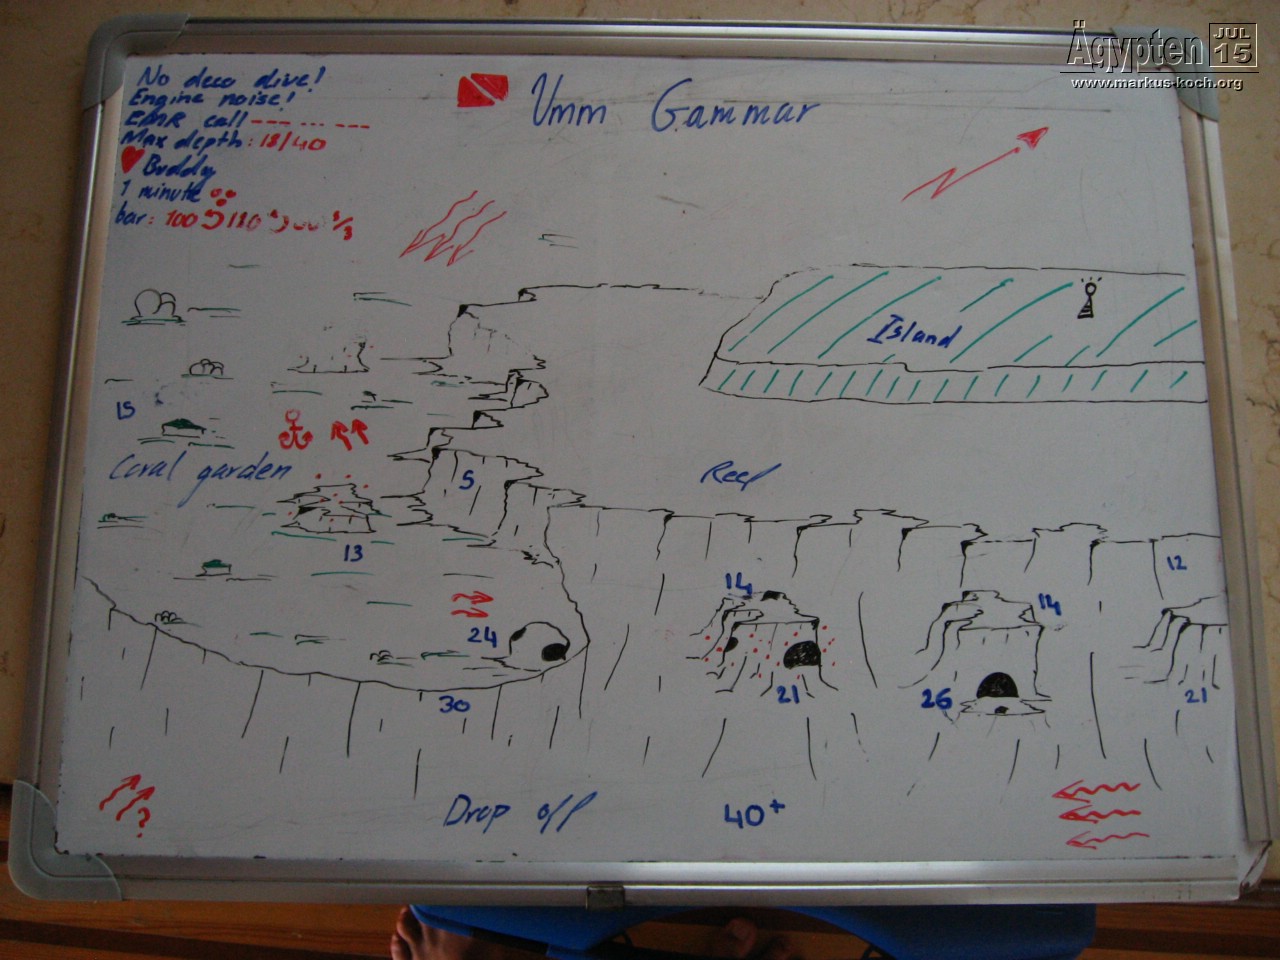 Ägypten
JUL
15
www.markus-koch.org
No deco dive!
Engine noise!
EMR call --- ... ---
Max depth: 18/40
Buddy
1 minute
bar: 100 120 1/3
Umm Gammar
Island
15
Coral garden
5
Reef
13
12
14
14
24
21
26
21
30
Drop off
40+
?